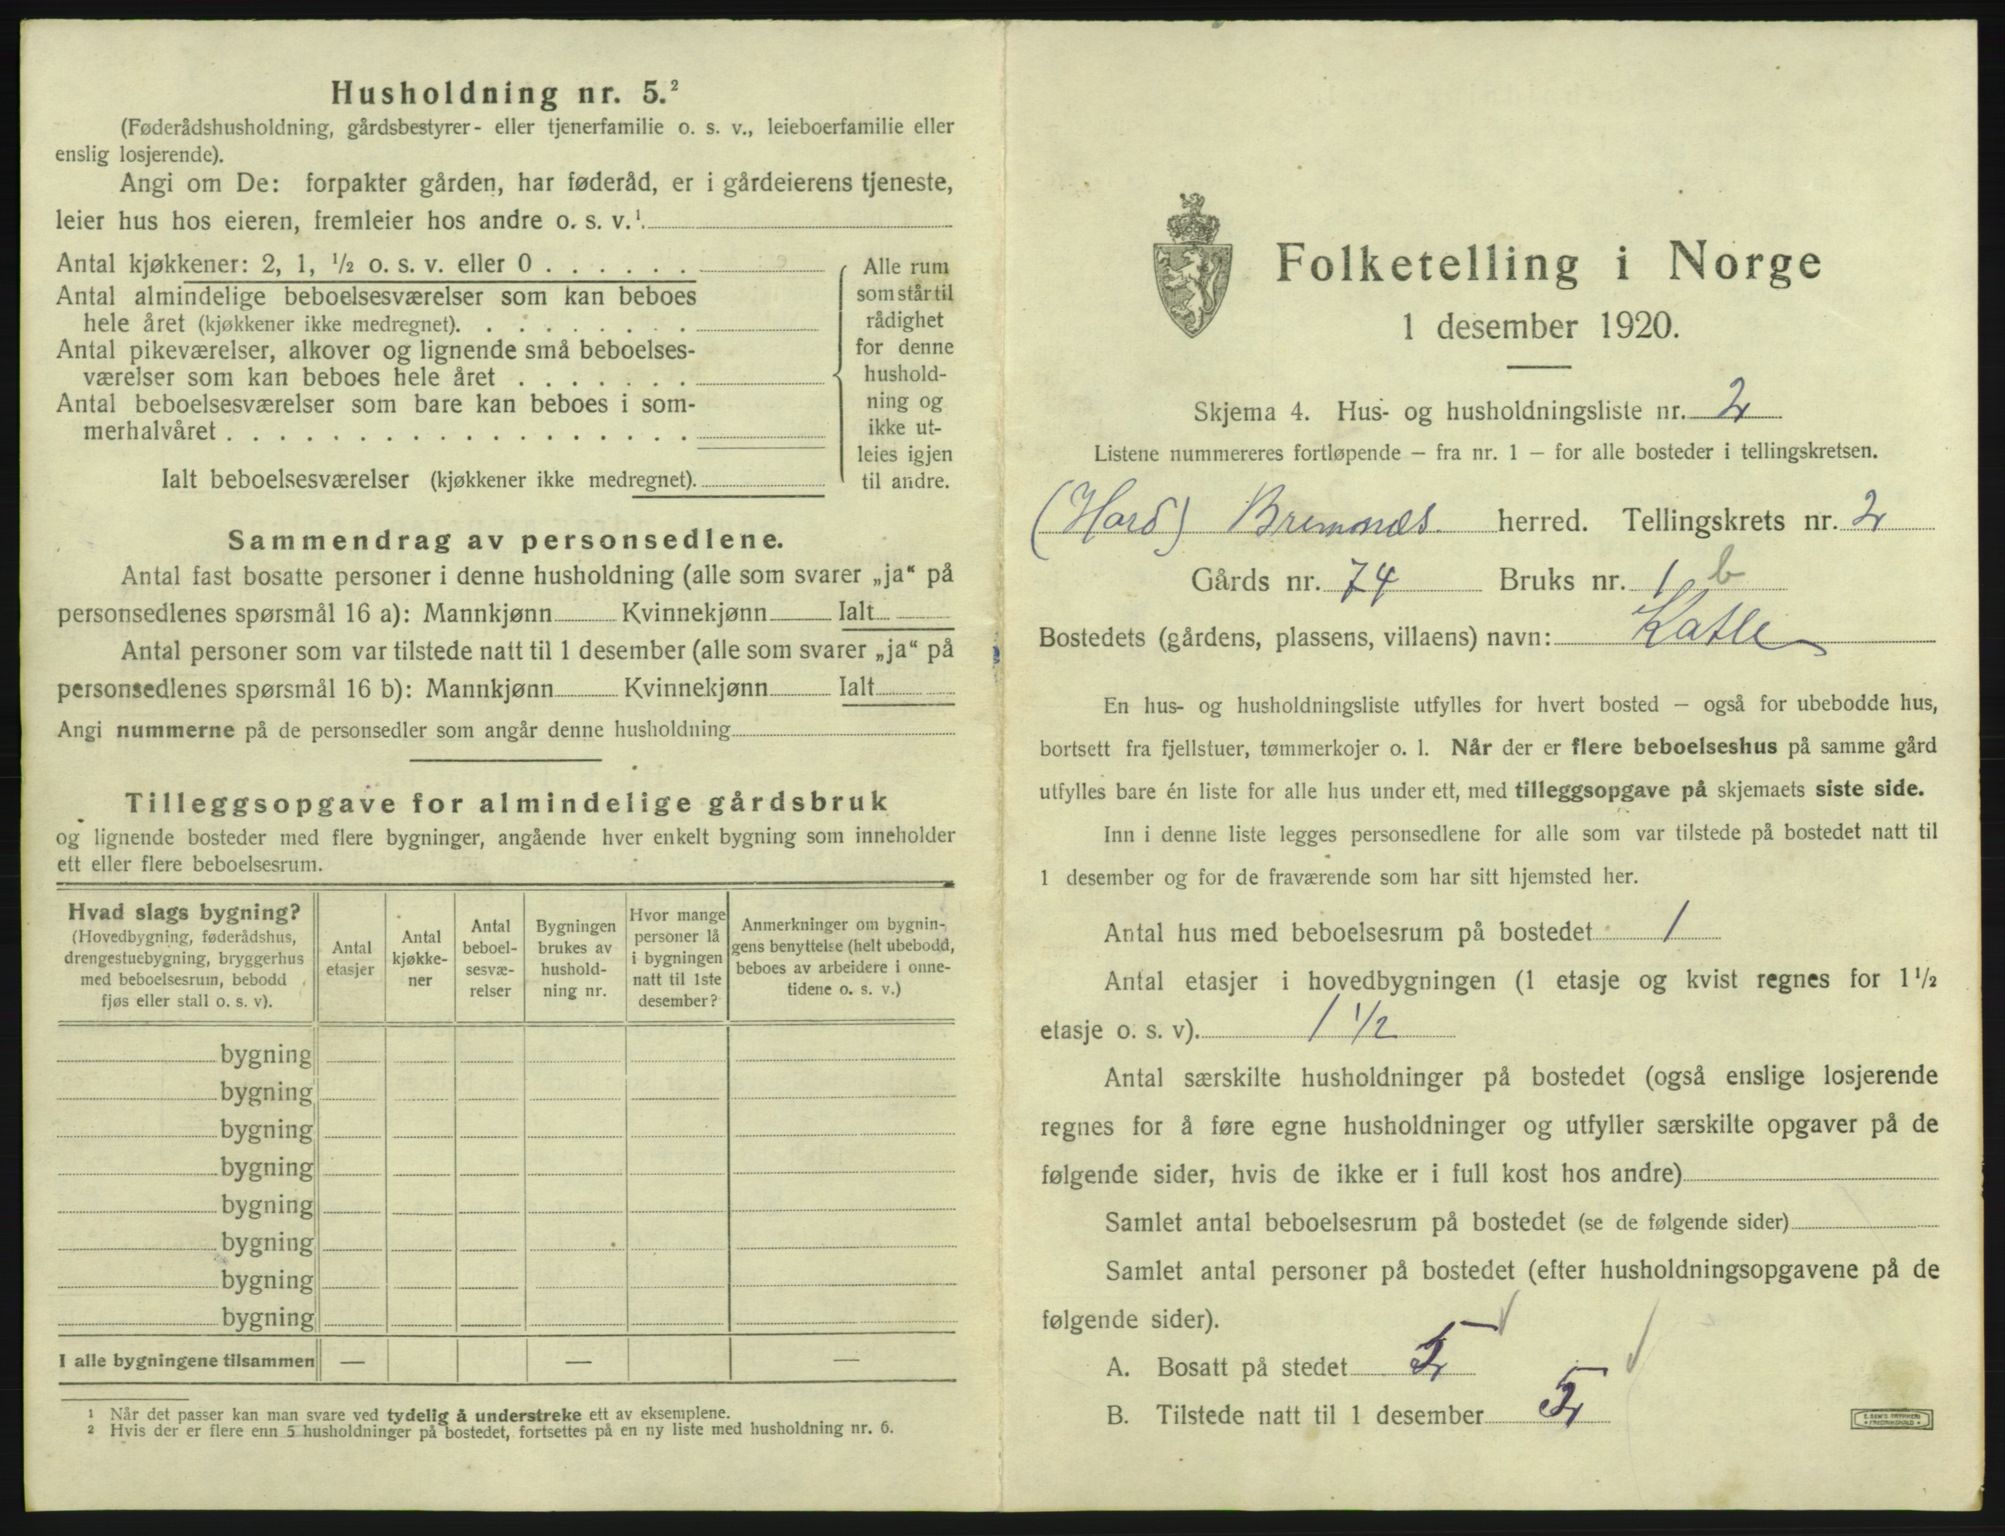 Husholdning nr. 5.²
(Føderådshusholdning, gårdsbestyrer- eller tjenerfamilie o. s. v., leieboerfamilie eller
enslig losjerende).
Angi om De: forpakter gården, har føderåd, er i gårdeierens tjeneste,
leier hus hos eieren, fremleier hos andre o. s. v.¹
Antal kjøkkener: 2, 1, ½ o. s. v. eller 0 . . . . . .
Antal almindelige beboelsesværelser som kan beboes
hele året (kjøkkener ikke medregnet). . . . . . . . .
Antal pikeværelser, alkover og lignende små beboelses-
værelser som kan beboes hele året . . . . . . .
Antal beboelsesværelser som bare kan beboes i som-
merhalvåret . . . . . . . . . . . . . . . . .
Ialt beboelsesværelser (kjøkkener ikke medregnet).
Alle rum
som står til
rådighet
for denne
hushold-
ning og
ikke ut-
leies igjen
til andre.
Sammendrag av personsedlene.
Antal fast bosatte personer i denne husholdning (alle som svarer „ja“ på
personsedlenes spørsmål 16 a): Mannkjønn Kvinnekjønn Ialt
Antal personer som var tilstede natt til 1 desember (alle som svarer „ja“ på
personsedlenes spørsmål 16 b): Mannkjønn Kvinnekjønn Ialt
Angi nummerne på de personsedler som angår denne husholdning
Tilleggsopgave for almindelige gårdsbruk
og lignende bosteder med flere bygninger, angående hver enkelt bygning som inneholder
ett eller flere beboelsesrum.
Hvad slags bygning?
(Hovedbygning, føderådshus,
drengestuebygning, bryggerhus
med beboelsesrum, bebodd
fjøs eller stall o. s. v).
Antal
etasjer
Antal
kjøkke-
ner
Antal
beboel-
sesvæ-
relser
Bygningen
brukes av
hushold-
ning nr.
Hvor mange
personer lå
i bygningen
natt til 1ste
desember?
Anmerkninger om bygnin-
gens benyttelse (helt ubebodd,
beboes av arbeidere i onne-
tidene o. s. v.)
bygning
bygning
bygning
bygning
bygning
bygning
bygning
bygning
I alle bygningene tilsammen — — —
¹ Når det passer kan man svare ved tydelig å understreke ett av eksemplene.
² Hvis der er flere enn 5 husholdninger på bostedet, fortsettes på en ny liste med husholdning nr. 6.
Folketelling i Norge
1 desember 1920.
Skjema 4. Hus- og husholdningsliste nr. 2
Listene nummereres fortløpende – fra nr. 1 – for alle bosteder i tellingskretsen.
(Hord) Bremnæs herred. Tellingskrets nr. 2
Gårds nr. 74 Bruks nr. 1 b
Bostedets (gårdens, plassens, villaens) navn: Katle
En hus- og husholdningsliste utfylles for hvert bosted – også for ubebodde hus,
bortsett fra fjellstuer, tømmerkojer o. l. Når der er flere beboelseshus på samme gård
utfylles bare én liste for alle hus under ett, med tilleggsopgave på skjemaets siste side.
Inn i denne liste legges personsedlene for alle som var tilstede på bostedet natt til
1 desember og for de fraværende som har sitt hjemsted her.
Antal hus med beboelsesrum på bostedet 1
Antal etasjer i hovedbygningen (1 etasje og kvist regnes for 1½
etasje o. s. v). 1 ½
Antal særskilte husholdninger på bostedet (også enslige losjerende
regnes for å føre egne husholdninger og utfyller særskilte opgaver på de
følgende sider, hvis de ikke er i full kost hos andre)
Samlet antal beboelsesrum på bostedet (se de følgende sider)
Samlet antal personer på bostedet (efter husholdningsopgavene på de
følgende sider).
A. Bosatt på stedet 5
B. Tilstede natt til 1 desember 5